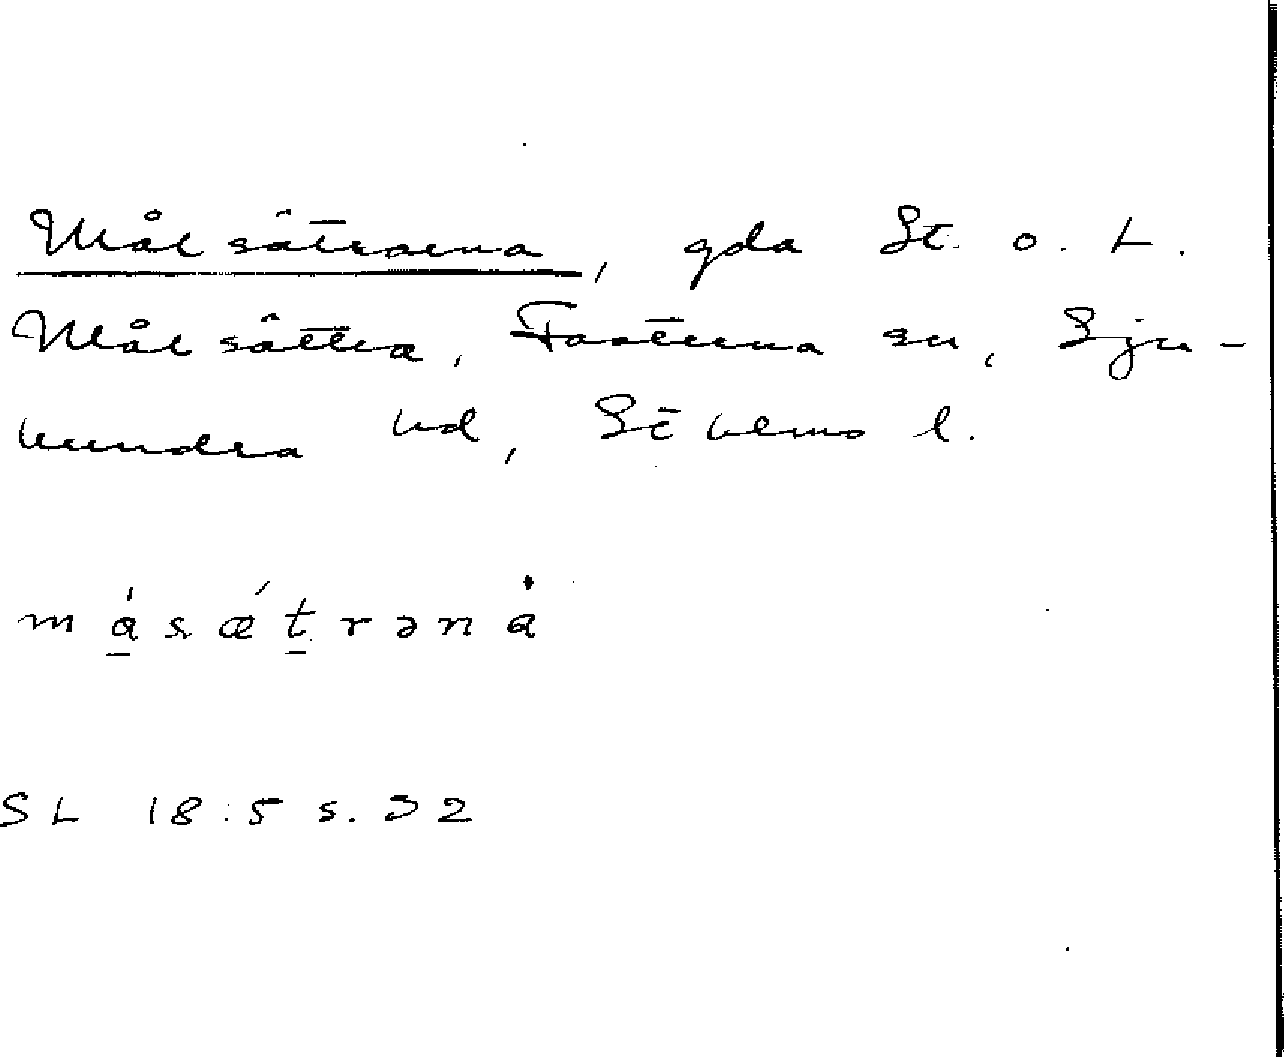 Målsätrarna, gda St. o. L.
Målsättra, Fasterna sn, Sju-
hundra hd, Sthlms l.
må̱sǽṯrəna
SL 18:5 s. 32